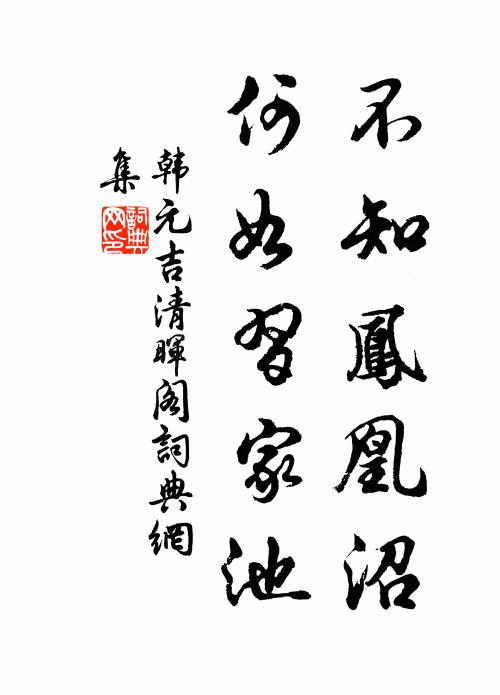 不知鳳凰沼
何如習家池
韩元吉清暉阁詞典網
集
詞典網印